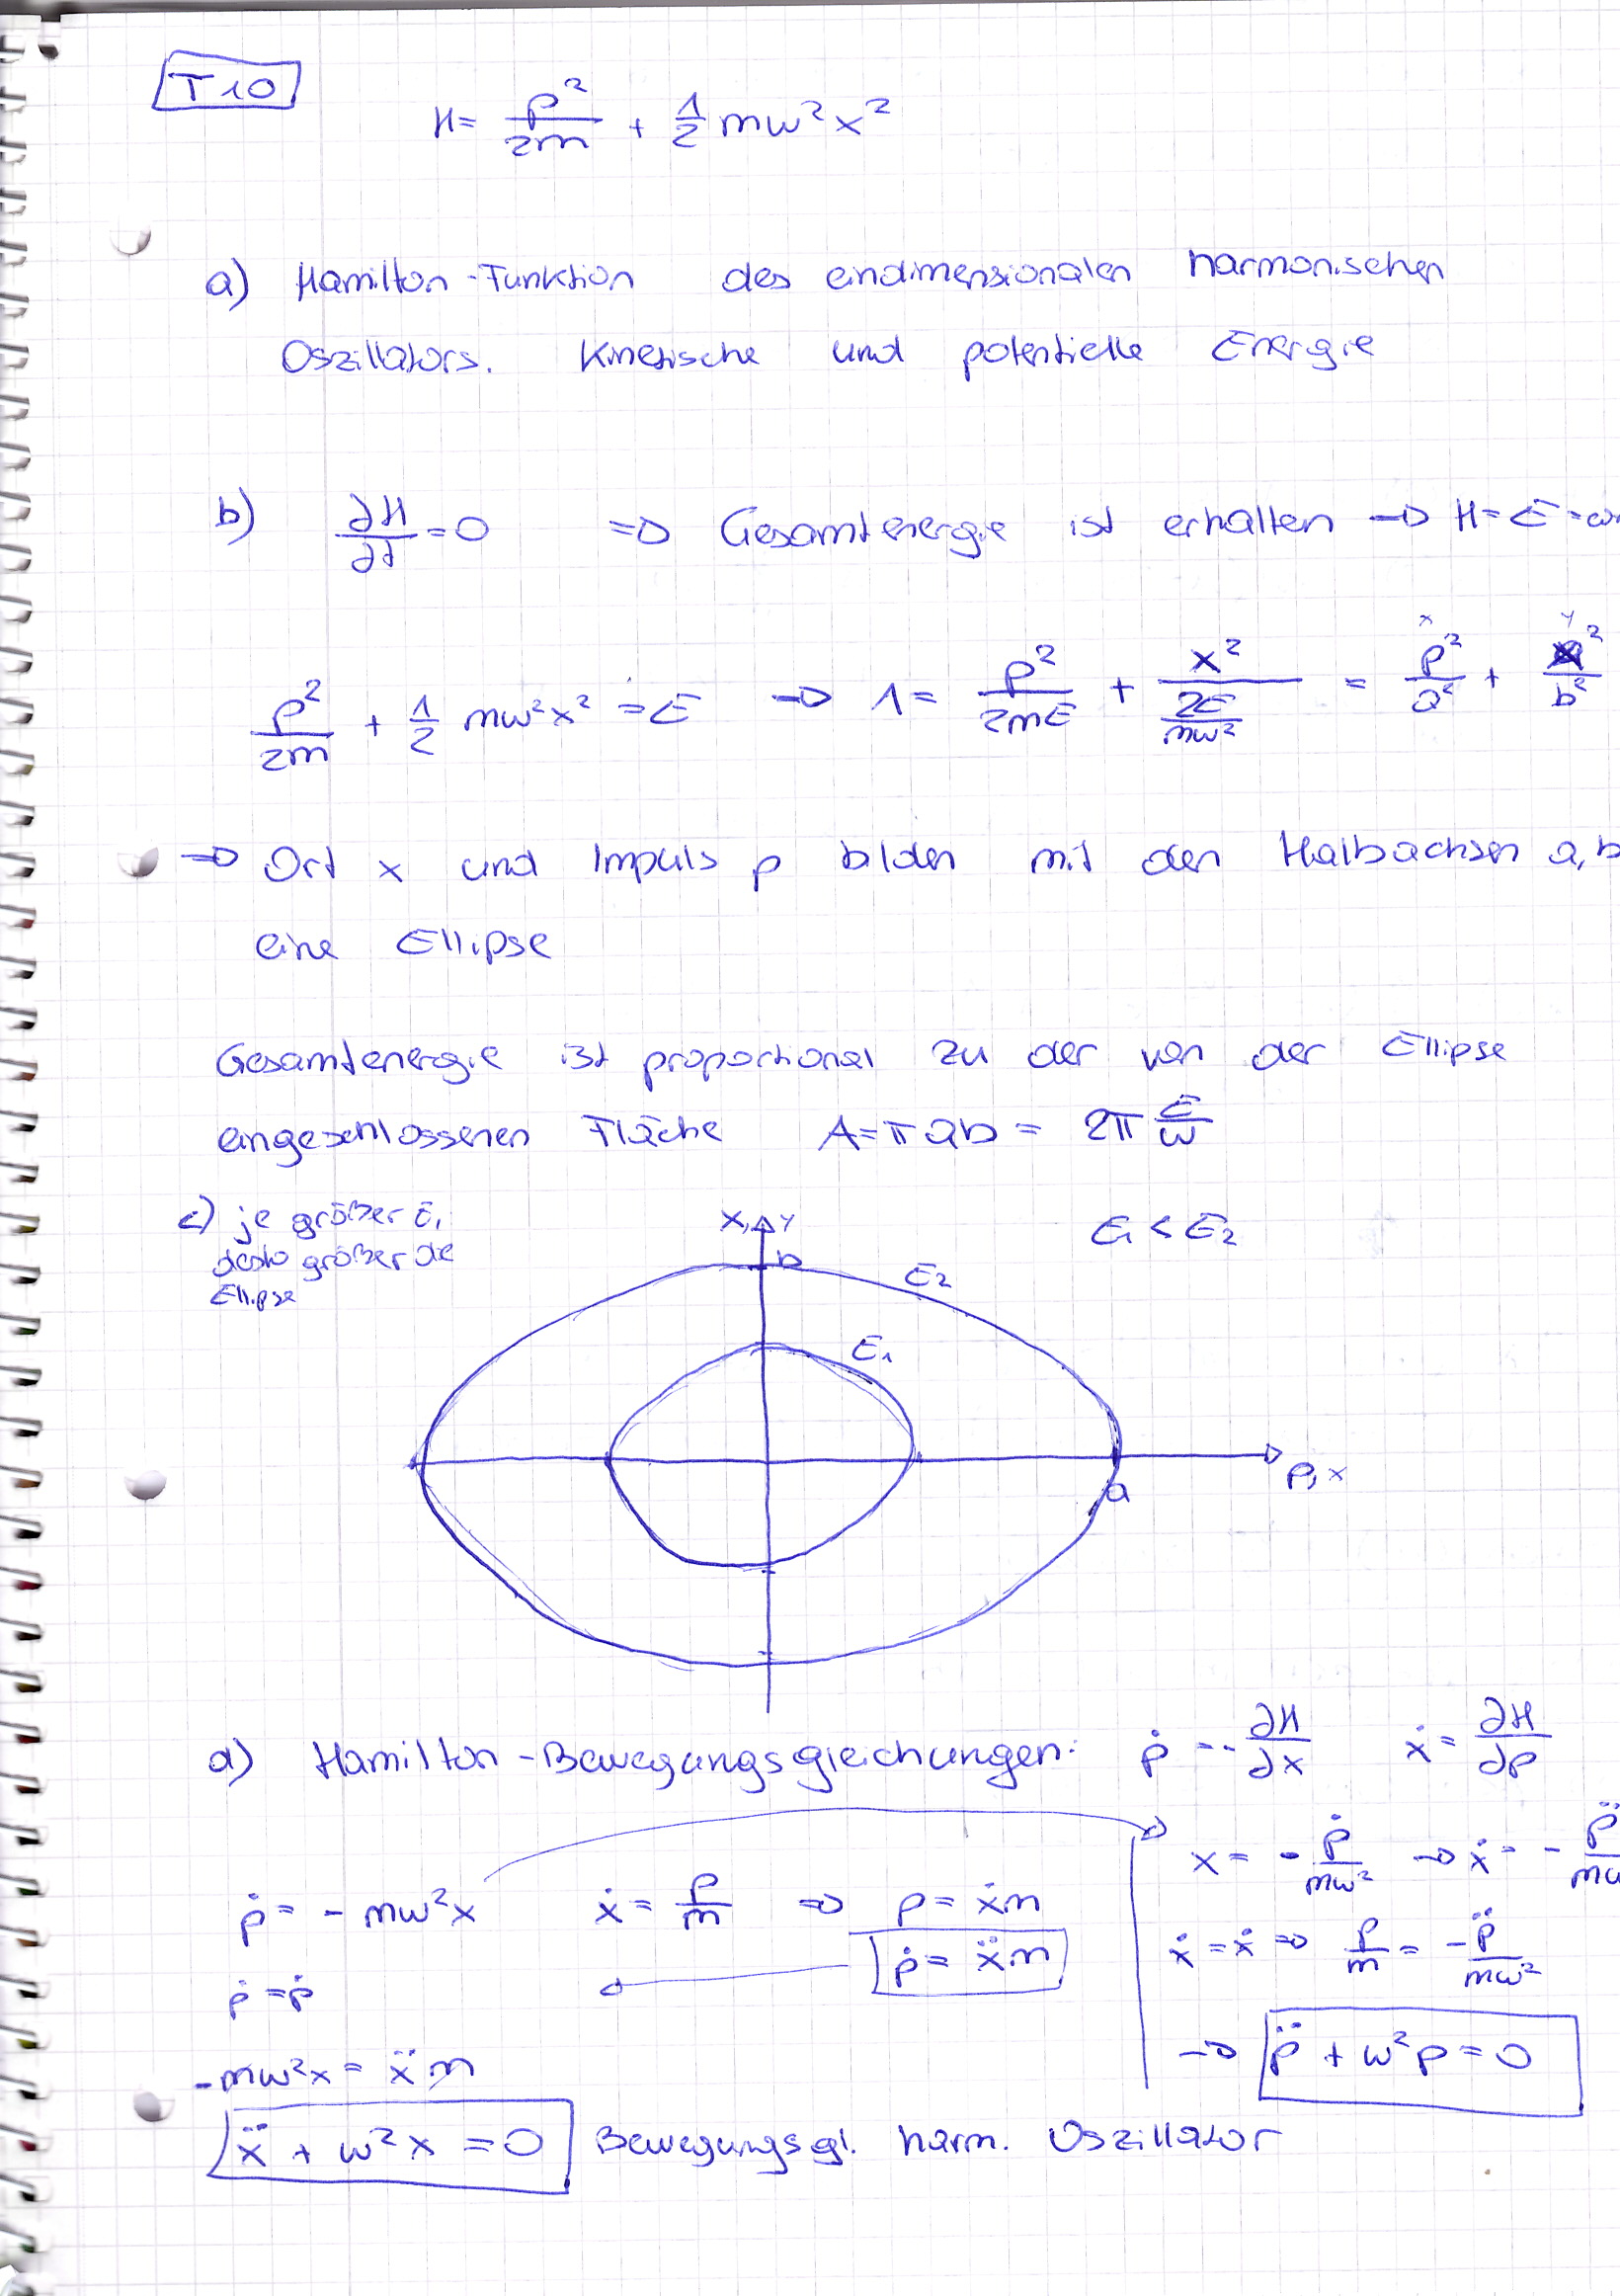 T10
H = p²/2m + 1/2 mω²x²
a) Hamilton-Funktion des eindimensionalen harmonischen
Oszillators. Kinetische und potentielle Energie
b) ∂H/∂t = 0 ⇒ Gesamtenergie ist erhalten → H = E =
x y
p²/2m + 1/2 mω²x² = E → 1 = p²/2mE + x²/(2E/mω²) = p²/a² + x²/b²
⇒ Ort x und Impuls p bilden mit den Halbachsen a, b
eine Ellipse
Gesamtenergie ist proportional zu der von der Ellipse
eingeschlossenen Fläche A = π ab = 2π E/ω
c) je größer E,
desto größer die
Ellipse
x, y
E₁ < E₂
b
E₂
E₁
p, x
a
d) Hamilton-Bewegungsgleichungen: ṗ = -∂H/∂x ẋ = ∂H/∂p
ṗ = - mω²x ẋ = p/m ⇒ p = ẋm
ṗ = ẍm
ṗ = ṗ
-mω²x = ẍm
ẍ + ω²x = 0 Bewegungsgl. harm. Oszillator
x = - ṗ/mω² → ẋ = - p̈/mω
ẋ = ẋ ⇒ p/m = -p̈/mω²
→ p̈ + ω²p = 0